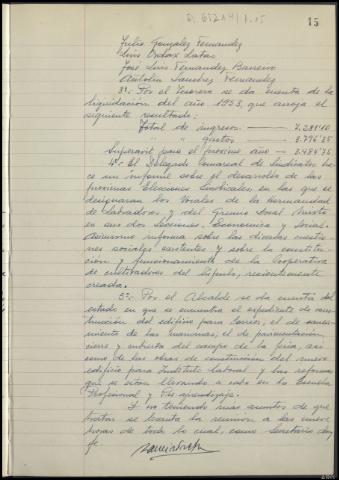 15
Julio Gonzalez Fernandez
Luis Ordax Latas
José Luis Fernandez Barreiro
Antolin Sanchez Fernandez
3º.- Por el Tesorero se da cuenta de la
liquidación del año 1953, que arroja el
siguiente resultado:
Total de ingresos
" " gastos
Superavit para el proximo año
4º.- El Delegado Comarcal de Sindicatos ha-
ce un informe sobre el desarrollo de las
proximas Elecciones Sindicales, en las que se
designaran los Vocales de la Hermandad
de Labradores y del Gremio Social Mixto
en sus dos Secciones, Economica y Social.
Asimismo informa sobre las diversas cuestio-
nes sociales existentes y sobre la constitu-
ción y funcionamiento de la Cooperativa
de cultivadores del lúpulo, recientemente
creada.
5º.- Por el Alcalde se da cuenta del
estado en que se encuentra el expediente de cons-
trucción del edificio para Correos, el de sanea-
miento de las manzanas, el de pavimentacion,
cierre y cubierta del campo de la feria, así
como de las obras de construcción del nuevo
edificio para Instituto Laboral y las reformas
que se estan llevando a cabo en la Escuela
Profesional y Pre-aprendizaje.
Y no teniendo mas asuntos de que
tratar se levanta la reunion a las nueve
horas de todo lo cual, como Secretario doy
fe.